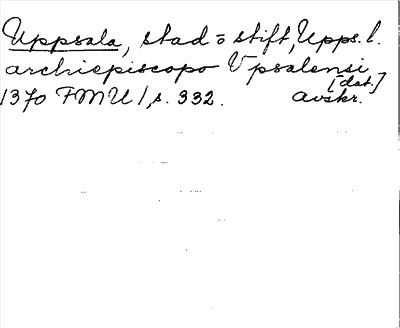 Uppsala, stad o stift, Upps. l.
archiepiscopo Vpsalensi
[dat.]
1370 FMU 1, s. 332. avskr.